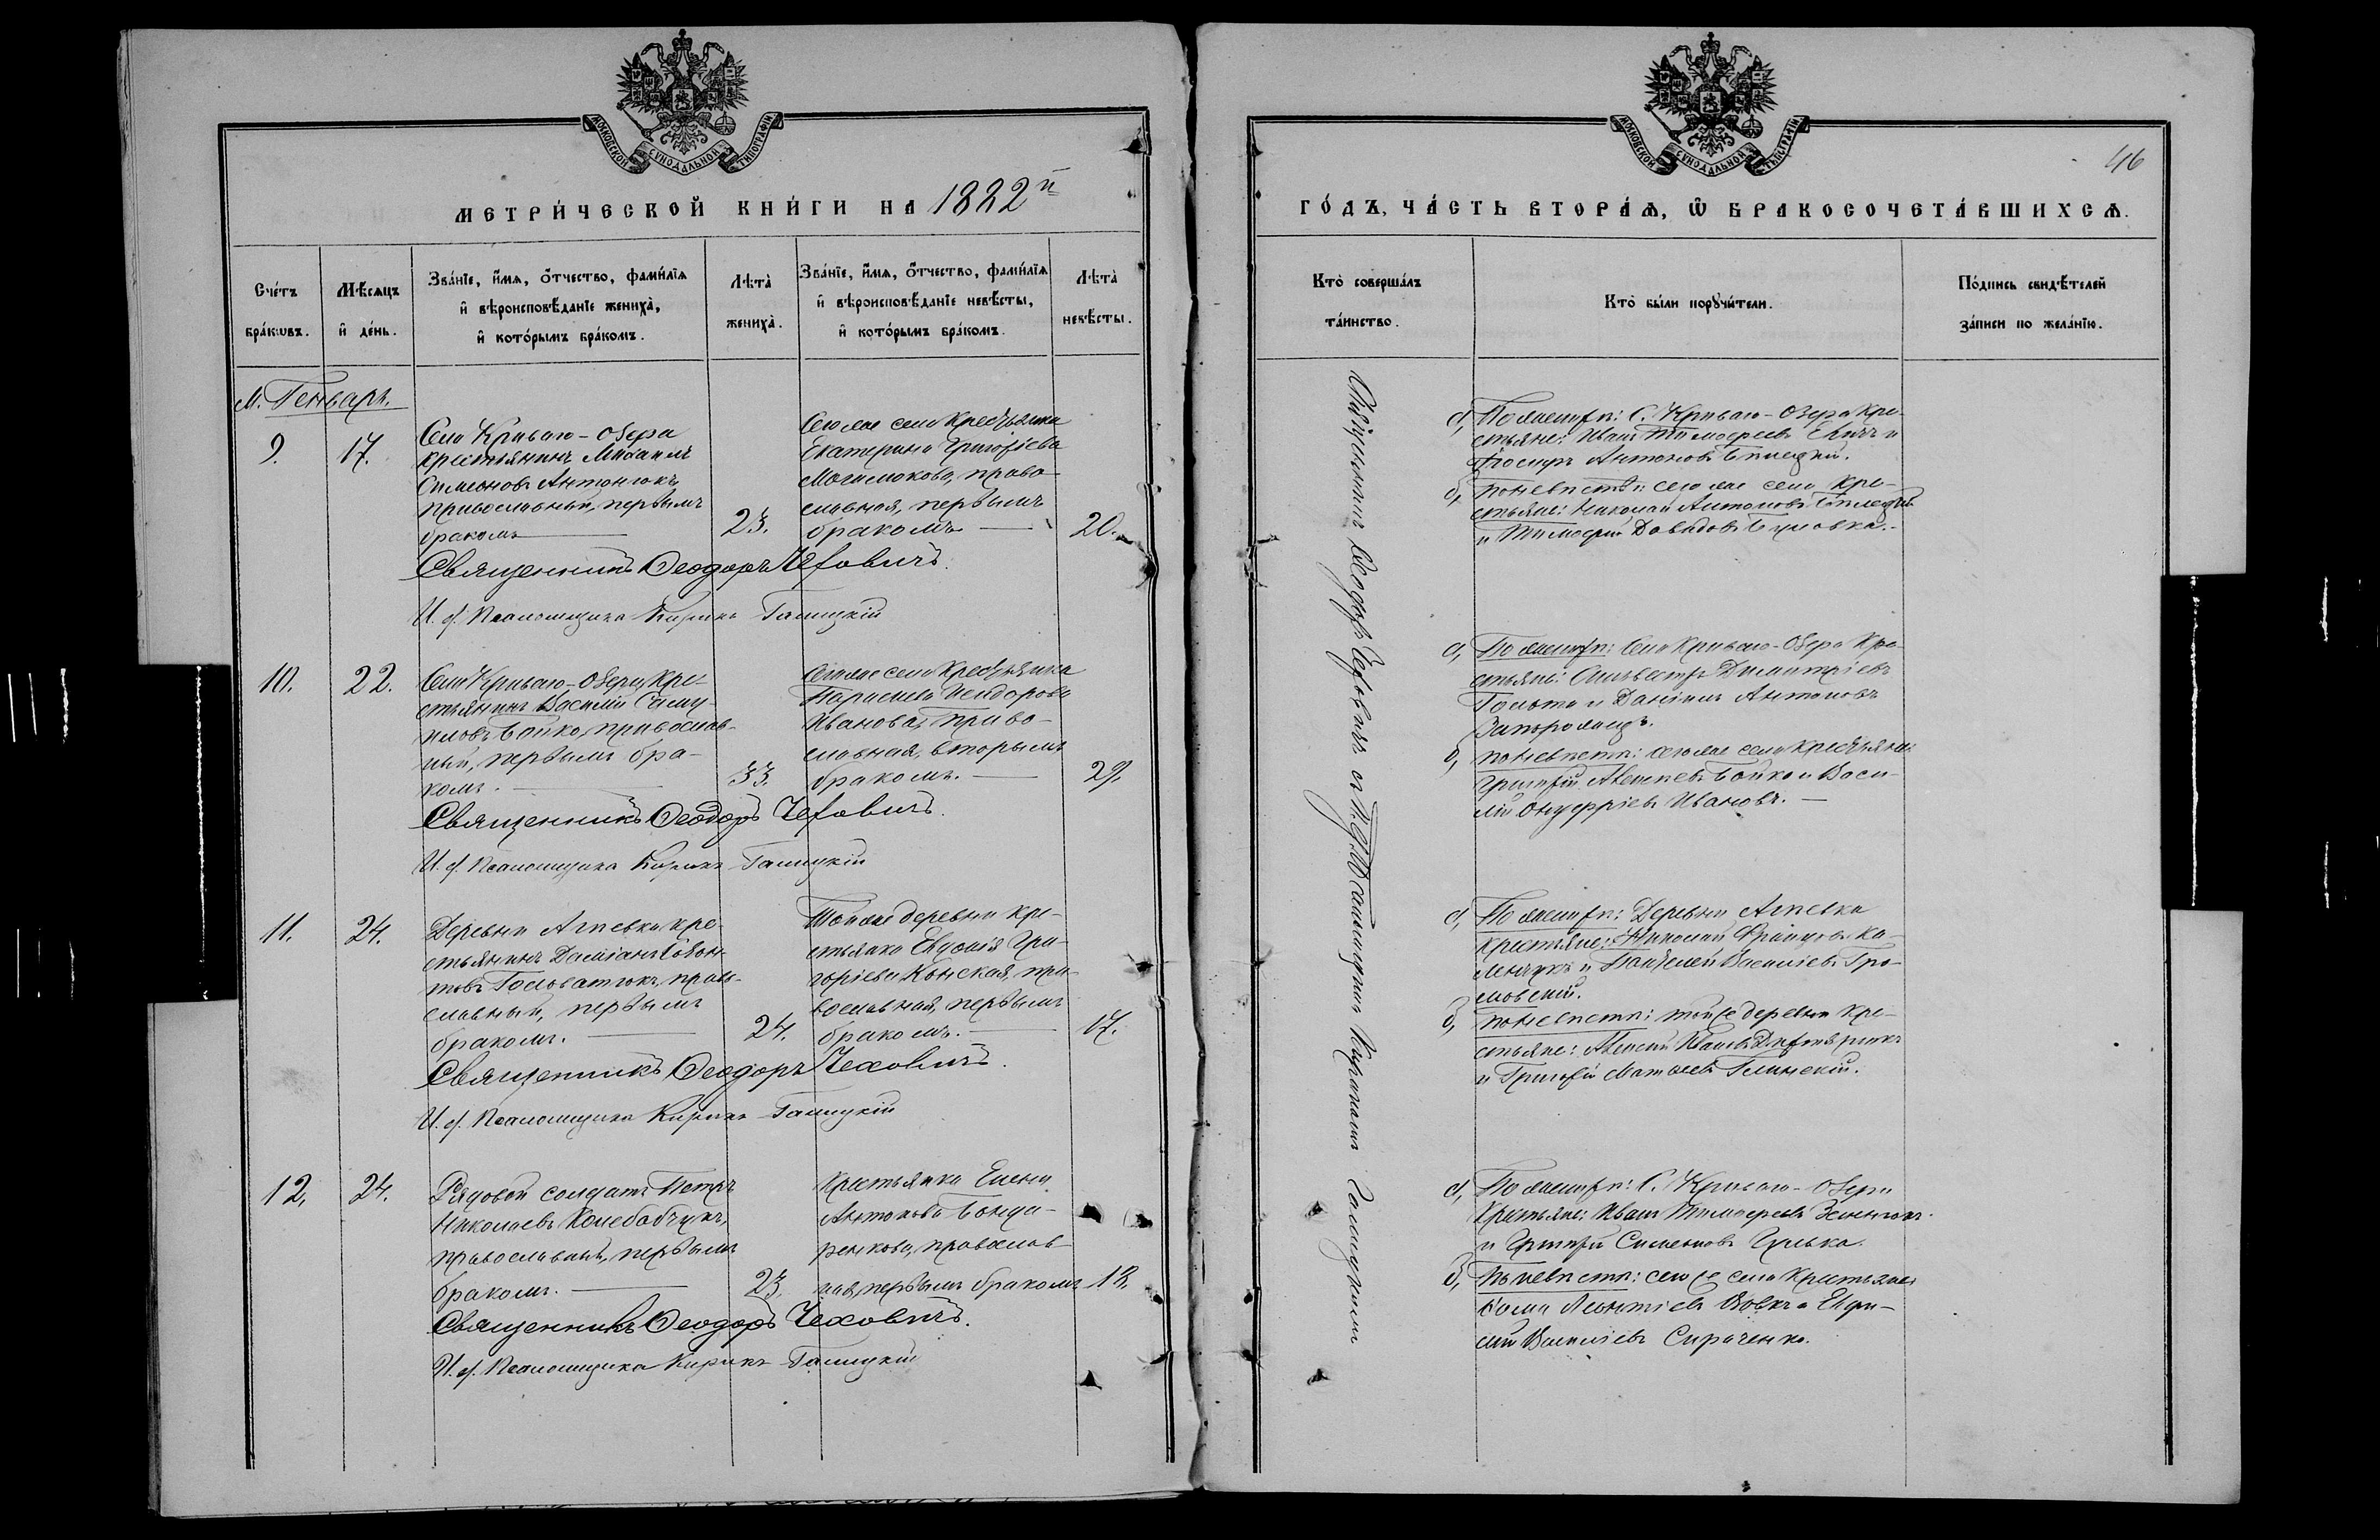 МОСКОВСКОЙ СѴНОДАЛЬНОЙ ТИПОГРАФІИ
МЕТРИ́ЧЕСКОЙ КНИ́ГИ НА 1882 й
Сче́тъ бра́кѡвъ.
Мѣ́сяцъ и҆ де́нь.
Зва́нїе, и҆́мѧ, ѻ҆́тчество, фами́лїѧ
и҆ вѣроисповѣ́данїе жениха̀,
и҆ кото́рымъ бра́комъ.
Лѣта̀ жениха̀.
Зва́нїе, и҆́мѧ, ѻ҆́тчество, фами́лїѧ
и҆ вѣроисповѣ́данїе невѣ́сты,
и҆ кото́рымъ бра́комъ.
Лѣта̀ невѣ́сты.
М. Генварь.
9.
17.
Села Криваго-Озера
крестьянинъ Михаилъ
Симеоновъ Антонюкъ,
православный, первымъ
бракомъ
23.
Сего же села крестьянка
Екатерина Григоріева
православная, первымъ
бракомъ
20.
Священникъ Ѳеодоръ Чеховичъ.
И. д. Псаломщика Кирикъ Галицкій
10.
22.
Села Криваго-Озера, кре-
стьянинъ Василій Саму-
иловъ Бойко, православ-
ный, первымъ бра-
комъ.
33.
Сего же села крестьянка
Параскева Исидорова
Иванова, право-
славная, вторымъ
бракомъ.
29.
Священникъ Ѳеодоръ Чеховичъ.
И. д. Псаломщика Кирикъ Галицкій
11.
24.
Деревни кре-
стьянинъ Даміанъ
Головатюкъ, право-
славный, первымъ
бракомъ.
24.
Той же деревни кре-
стьянка Евдокія Гри-
горіева Конская, пра-
вославная, первымъ
бракомъ.
17.
Священникъ Ѳеодоръ Чеховичъ.
И. д. Псаломщика Кирикъ Галицкій
12.
24.
Рядовой солдатъ Петръ
Николаевъ Колебабчукъ,
православный, первымъ
бракомъ.
23.
Крестьянка Елена
Антонова Бонда-
ренкова, православ-
ная, первымъ бракомъ
18.
Священникъ Ѳеодоръ Чеховичъ.
И. д. Псаломщика Кирикъ Галицкій
МОСКОВСКОЙ СѴНОДАЛЬНОЙ ТИПОГРАФІИ
46
ГО́ДЪ, ЧА́СТЬ ВТОРА́Ѧ, Ѡ҆ БРАКОСОЧЕТА́ВШИХСѦ.
Кто̀ соверша́лъ та́инство.
Кто̀ бы́ли порꙋчи́тели.
По́дпись свидѣ́телей за́писи по жела́нїю.
Священникъ Ѳеодоръ Чеховичъ съ И. д. Псаломщика Кирикомъ Галицкимъ
а, По женихѣ: С. Криваго-Озера кре-
стьяне: Иванъ Тимоѳеевъ и
Іосифъ Антоновъ
б, по невѣстѣ: сего же села кре-
стьяне: Николай Антоновъ
и Тимоѳей Давидовъ
а, По женихѣ: Села Криваго-Озера кре-
стьяне: Сильвестръ Димитріевъ
и Даніилъ Антоновъ
Запорожецъ.
б, по невѣстѣ: сего же села крестьяне:
Григорій Алексѣевъ Бойко и Васи-
лій Онуфріевъ Ивановъ.
а, По женихѣ: Деревни
крестьяне: Николай Ка-
и Пантелей Василіевъ Гро-
мовскій.
б, по невѣстѣ: той же деревни кре-
стьяне: Алексѣй Ивановъ
и Григорій Матѳеевъ Глинскій.
а, По женихѣ: С. Криваго-Озера
крестьяне: Иванъ Тимоѳеевъ
и Григорій Симеоновъ Гулька.
б, по невѣстѣ: сего же села крестьяне:
Ѳома Леонтіевъ и
Василіевъ Сираченко.